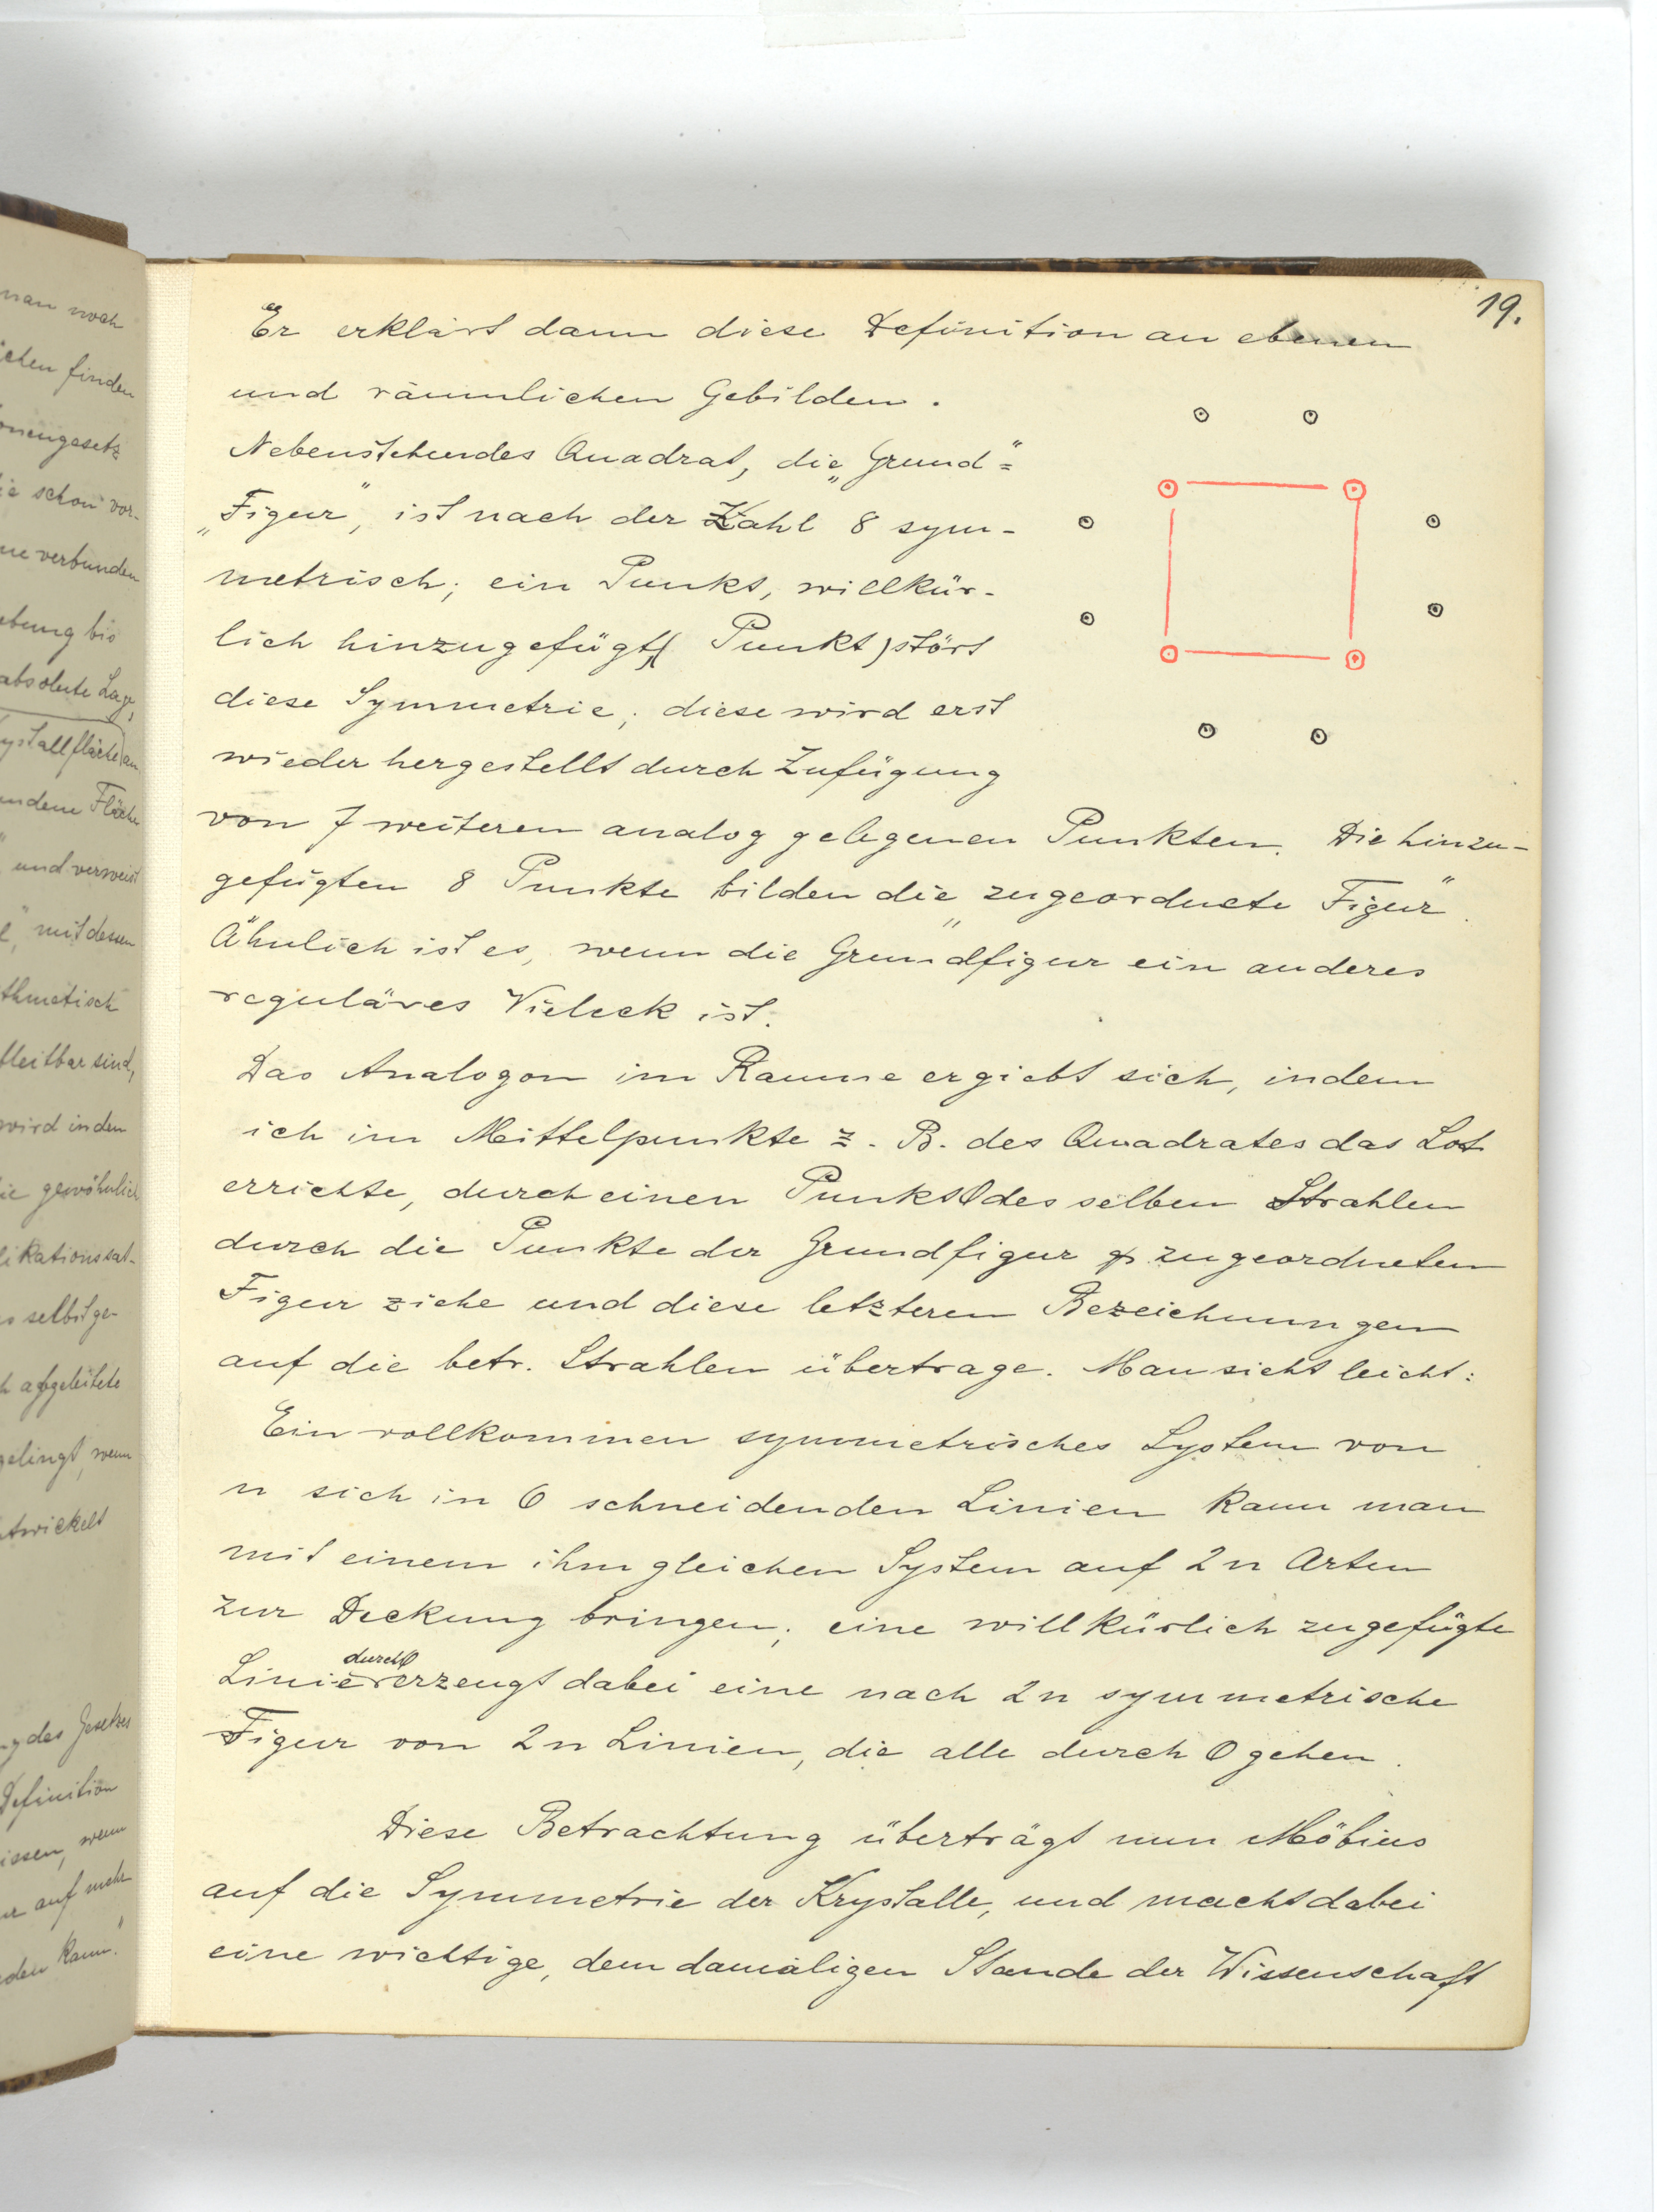 man noch
ichen finden
onengesetz
ie schon vor-
me verbunden
ebung bis
absolute Lage,
ystallfläche an
endene Fläche
und verweist
mit dessen
thmetisch
bleitbar sind,
wird in den
ie gewöhnlich
likationssat-
selbst ge-
h abgeleitete
gelingt, wenn
ntwickelt
g des Gesetzes
Definition
issen, wenn
auf mehr
den kann."
19.
Er erklärt dann diese Definition an ebenen
und räumlichen Gebilden.
Nebenstehendes Quadrat, die „Grund"=
„Figur", ist nach der Zahl 8 sym-
metrisch; ein Punkt, willkür-
lich hinzugefügt,( Punkt) stört
diese Symmetrie; diese wird erst
wieder hergestellt durch Zufügung
von 7 weiteren analog gelegenen Punkten. Die hinzu-
gefügten 8 Punkte bilden die „zugeordnete Figur".
Ähnlich ist es, wenn die Grundfigur ein anderes
reguläres Vieleck ist.
Das Analogon im Raume ergiebt sich, indem
ich im Mittelpunkte z. B. des Quadrates das Lot
errichte, durch einen Punkt O desselben Strahlen
durch die Punkte der Grundfigur & zugeordneten
Figur ziehe und diese letzteren Bezeichnungen
auf die betr. Strahlen übertrage. Man sieht leicht:
Ein vollkommen symmetrisches System von
n sich in O schneidenden Linien kann man
mit einem ihm gleichen System auf 2n Arten
zur Deckung bringen; eine willkürlich zugefügte
Linie durch O erzeugt dabei eine nach 2n symmetrische
Figur von 2n Linien, die alle durch O gehen.
Diese Betrachtung überträgt nun Möbius
auf die Symmetrie der Krystalle, und macht dabei
eine wichtige, dem damaligen Stande der Wissenschaft